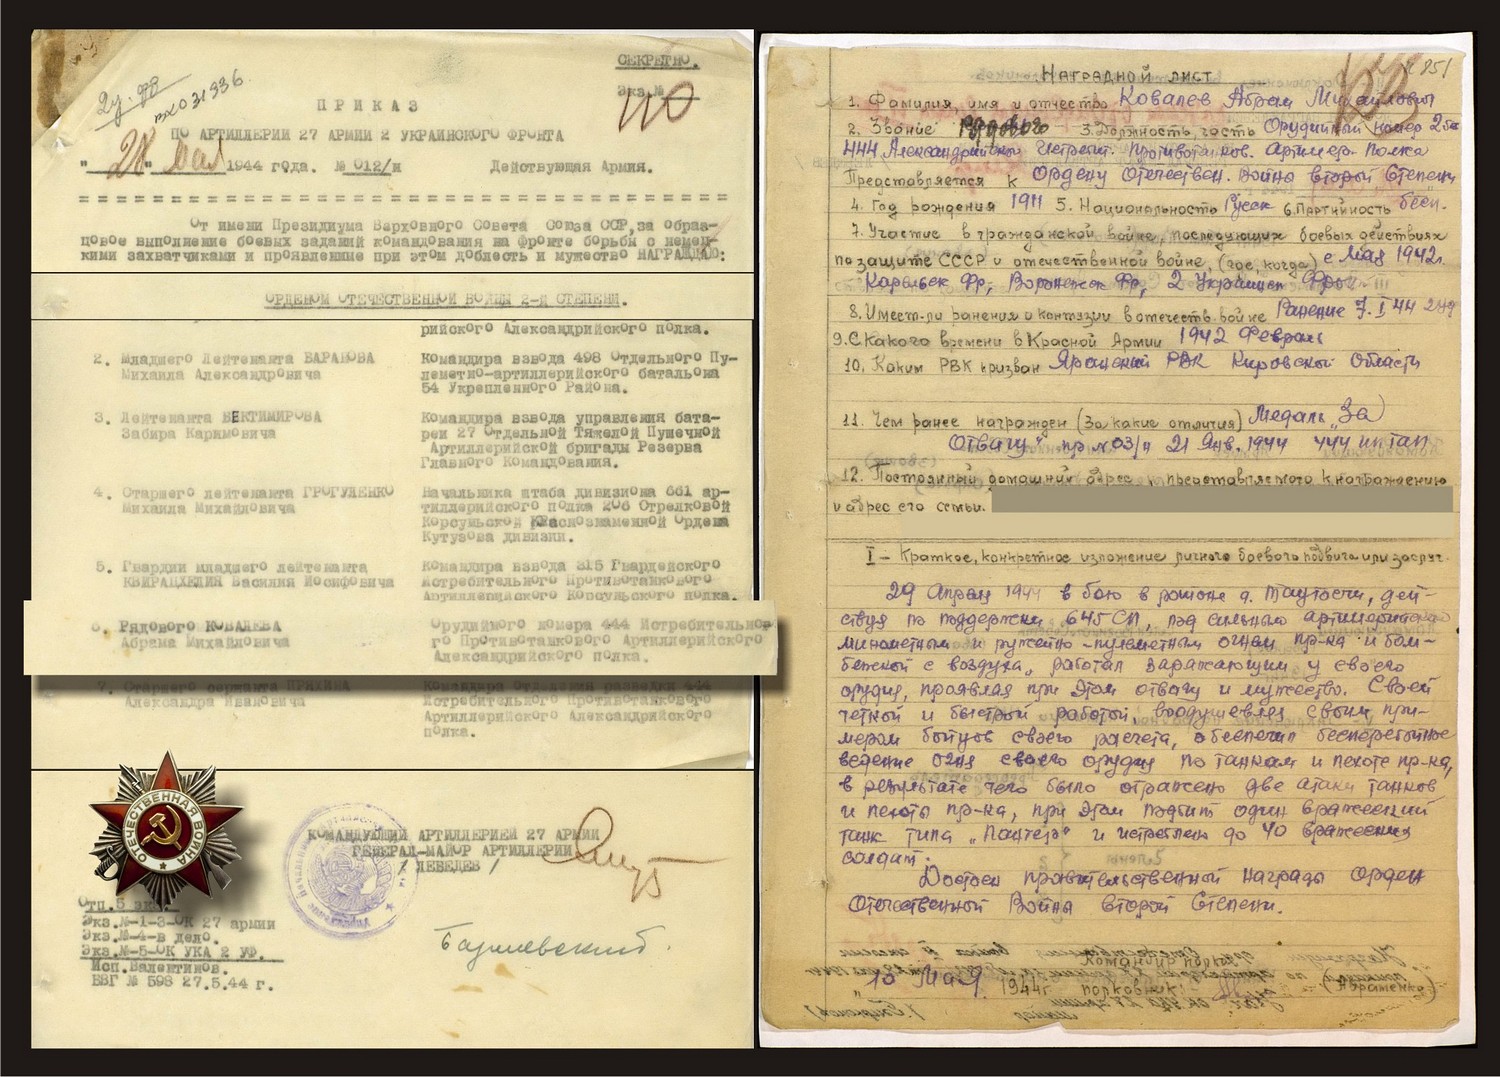 СЕКРЕТНО.
Экз.№
110
ПРИКАЗ
ПО АРТИЛЛЕРИИ 27 АРМИИ 2 УКРАИНСКОГО ФРОНТА
"28" мая 1944 года. № 012/н Действующая Армия.
От имени Президиума Верховного Совета Союза ССР, за образ-
цовое выполнение боевых заданий командования на фронте борьбы с немец-
кими захватчиками и проявленние при этом доблесть и мужество НАГРАЖДАЮ:
ОРДЕНОМ ОТЕЧЕСТВЕННОЙ ВОЙНЫ 2-й СТЕПЕНИ.
рийского Александрийского полка.
2. Младшего Лейтенанта БАРАНОВА Командира взвода 498 Отдельного Пу-
Михаила Александровича леметно-артиллерийского батальона
54 Укрепленного Района.
3. Лейтенанта БЕКТИМИРОВА Командира взвода управления бата-
Забира Каримовича реи 27 Отдельной Тяжелой Пушечной
Артиллерийской бригады Резерва
Главного Командования.
4. Старшего лейтенанта ГРОГУЛЕНКО Начальника штаба дивизиона 661 ар-
Михаила Михайловича тиллерийского полка 206 Стрелковой
Корсуньской Краснознаменной Ордена
Кутузова дивизии.
5. Гвардии младшего лейтенанта Командира взвода 315 Гвардейского
КВИРАЦХЕЛИЯ Василия Иосифовича Истребительного Противотанкового
Артиллерийского Корсуньского полка.
6. Рядового КОВАЛЕВА Орудийного номера 444 Истребительно
Абрама Михайловича го Противотанкового Артиллерийского
Александрийского полка.
7. Старшего сержанта ПРИХИНА Командира отделения разведки 444
Александра Ивановича Истребительного Противотанкового
Артиллерийского Александрийского
полка.
ОТЕЧЕСТВЕННАЯ ВОЙНА
КОМАНДУЮЩИЙ АРТИЛЛЕРИЕЙ 27 АРМИИ
ГЕНЕРАЛ-МАЙОР АРТИЛЛЕРИИ
/ ЛЕБЕДЕВ /
Отп.5 экз.
Экз.№-1-3-ОК 27 армии
Экз.№-4-в дело.
Экз.№-5-ОК УКА 2 УФ.
Исп.Валентинов.
ВВГ № 598 27.5.44 г.
НАГРАДНОЙ ЛИСТ
1. Фамилия, имя и отчество Ковалев Абрам Михайлович
2. Звание Рядового 3. Должность, часть Орудийный номер 2ба
444 Александрийского Истребит. Противотанков. Артилер. Полка
Представляется к Ордену Отечествен. Войны второй Степени
4. Год рождения 1911 5. Национальность Русск 6. Партийность бесп.
7. Участие в гражданской войне, последующих боевых действиях
по защите СССР и отечественной войне, (где, когда) с Мая 1942г.
Карельск Фр, Воронежск Фр, 2 Украинск Фрон
8. Имеет-ли ранения и контузии в отечеств. войне Ранение 7.I 44
9. С какого времени в Красной Армии 1942 Февраль
10. Каким РВК призван Яранский РВК Кировской Области
11. Чем ранее награжден (за какие отличия) Медаль „За
Отвагу" пр №03/н 21 Янв. 1944 444 иптап
12. Постоянный домашний адрес, представляемого к награждению
и адрес его семьи.
I – Краткое, конкретное изложение личного боевого подвига или заслуг.
29 Апреля 1944 в бою в районе д. Таутости, дей-
ствуя по поддержки 645 СП, под сильным артилерийско
минометным и ружейно-пулеметным огнем пр-ка и бом-
бежкой с воздуха, работал заряжающим у своего
орудия, проявляя при этом отвагу и мужество. Своей
четкой и быстрой работой, воодушевляя своим при-
мером бойцов своего расчета, обеспечил бесперебойное
ведение огня своего орудия по танкам и пехоте пр-ка,
в результате чего было отражено две атаки танков
и пехоты пр-ка, при этом подбит один вражеский
танк типа „Пантера" и истреблен до 40 вражеских
солдат.
Достоен правительственной награды орден
Отечественной Войны второй Степени.
Командир полка
10 Мая 1944г. полковник: (Авраменко)